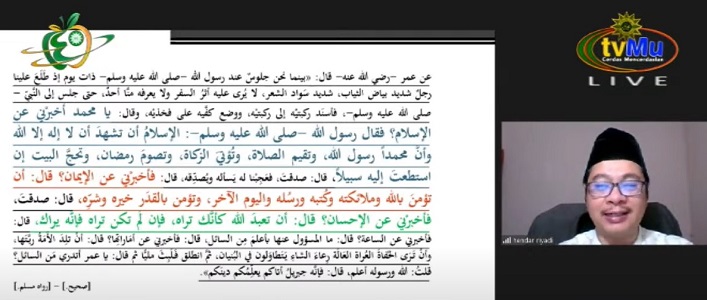 عن عمر -رضي الله عنه- قال: «بينما نحن جلوسٌ عند رسول الله -صلى الله عليه وسلم- ذات يوم إذ طَلَعَ علينا
رجلٌ شديد بياض الثياب، شديد سَواد الشعر، لا يُرى عليه أثرُ السفر ولا يعرفه منَّا أحدٌ، حتى جلس إلى النَّبِيّ -
صلى الله عليه وسلم-، فأسنَد ركبتيْه إلى ركبتيْه، ووضع كفَّيه على فخذيْه، وقال: يا محمد أخبرْني عن
الإسلام؟ فقال رسول الله -صلى الله عليه وسلم-: الإسلامُ أن تشهدَ أن لا إله إلا الله
وأنَّ محمداً رسول الله، وتقيم الصلاة، وتُؤتِيَ الزكاة، وتصومَ رمضان، وتحجَّ البيت إن
استطعتَ إليه سبيلاً، قال: صدقتَ، فعَجِبْنا له يسأله ويُصدِّقه، قال: فأخبرْني عن الإيمان؟ قال: أن
تؤمنَ بالله وملائكته وكُتبه ورسُله واليوم الآخر، وتؤمن بالقدَر خيره وشرّه، قال: صدقتَ،
فأخبرْني عن الإحسان؟ قال: أن تعبدَ الله كأنَّك تراه، فإن لم تكن تراه فإنَّه يراك، قال:
فأخبرْني عن الساعة؟ قال: ما المسؤول عنها بأعلمَ مِن السائل، قال: فأخبرْني عن أماراتِها؟ قال: أنْ تلِدَ الأمَةُ ربَّتها،
وأنْ تَرَى الحُفاةَ العُراة العَالَة رِعاءَ الشاءِ يَتطاوَلون في البُنيان، ثمَّ انطلق فلَبِثَ مليًّا ثم قال: يا عمر أتدري مَن السائل؟
قلتُ: الله ورسوله أعلم، قال: فإنَّه جبريلُ أتاكم يعلِّمُكم دينَكم».
[صحيح.] - [رواه مسلم.]
tvMu
Cerdas Mencerdaskan
LIVE
hendar riyadi